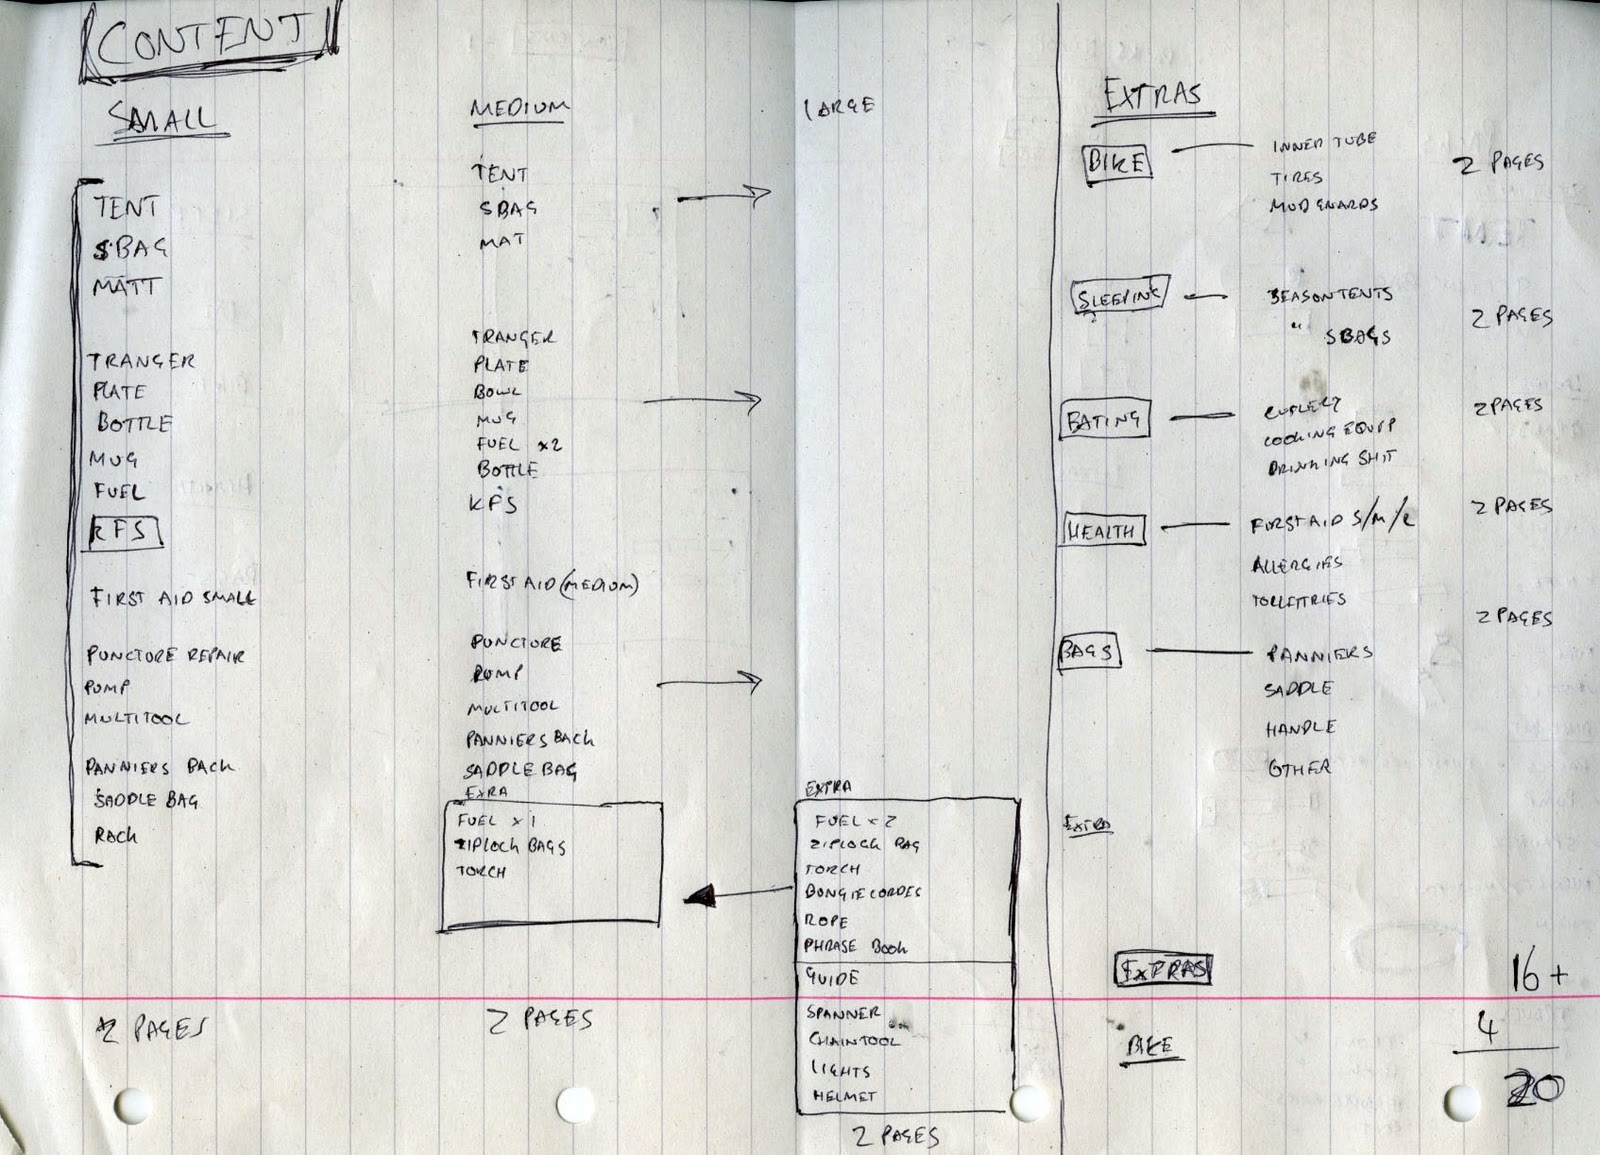 CONTENT
SMALL
TENT
SBAG
MATT
TRANGER
PLATE
BOTTLE
MUG
FUEL
KFS
FIRST AID SMALL
PUNCTURE REPAIR
PUMP
MULTITOOL
PANNIERS BACK
SADDLE BAG
RACK
2 PAGES
MEDIUM
TENT
SBAG
MAT
TRANGER
PLATE
BOWL
MUG
FUEL x2
BOTTLE
KFS
FIRST AID (MEDIUM)
PUNCTURE
PUMP
MULTITOOL
PANNIERS BACK
SADDLE BAG
EXRA
FUEL x 1
ZIPLOCK BAGS
TORCH
2 PAGES
LARGE
EXTRA
FUEL x 2
ZIPLOCK BAG
TORCH
BONGIE CORDES
ROPE
PHRASE BOOK
GUIDE
SPANNER
CHAINTOOL
LIGHTS
HELMET
2 PAGES
EXTRAS
BIKE
INNER TUBE
TIRES
MUDGUARDS
2 PAGES
SLEEPING
SEASON TENTS
" SBAGS
2 PAGES
EATING
CUTLERY
COOKING EQUIP
DRINKING SHIT
2 PAGES
HEALTH
FIRST AID S/M/L
ALLERGIES
TOILETTRIES
2 PAGES
BAGS
PANNIERS
SADDLE
HANDLE
OTHER
2 PAGES
EXTRA
EXTRAS
BIKE
16 +
4
20